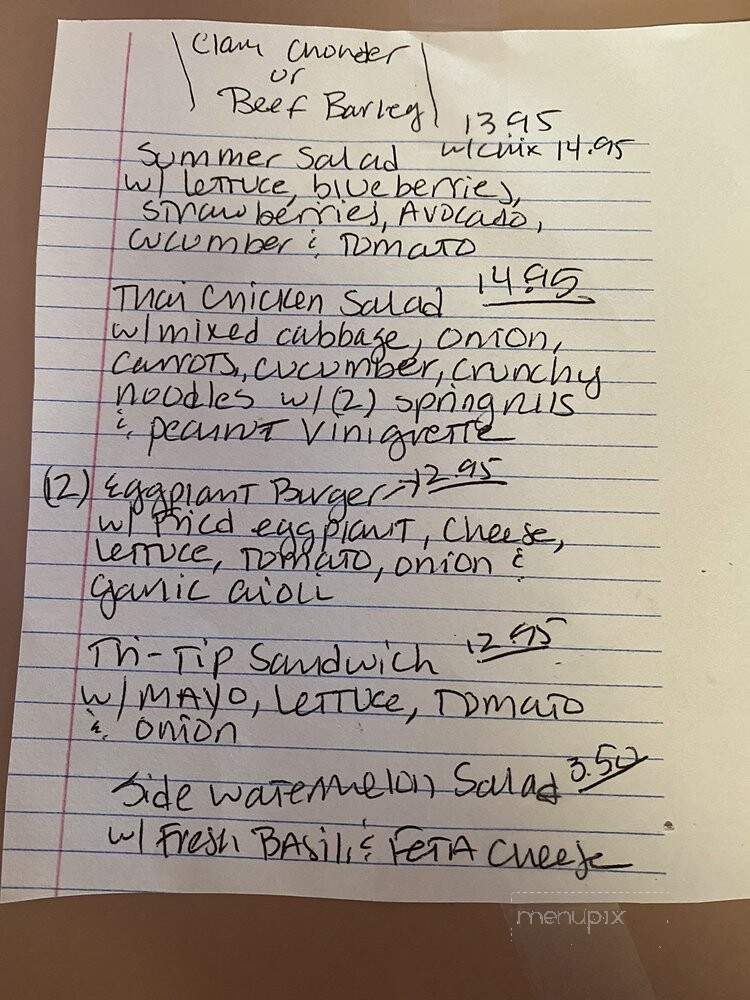 Clam Chowder
or
Beef Barley
13.95
Summer Salad w/chix 14.95
w/ Lettuce, blueberries,
strawberries, Avocado,
cucumber & Tomato
Thai Chicken Salad 14.95
w/mixed cabbage, onion,
carrots, cucumber, crunchy
noodles w/(2) spring rolls
& peanut Vinigrette
(12) Eggplant Burger 12.95
w/ Fried eggplant, cheese,
Lettuce, Tomato, onion &
garlic aioli
Tri-Tip Sandwich 12.95
w/ Mayo, Lettuce, Tomato
& onion
Side Watermelon Salad 3.50
w/ Fresh Basil & Feta Cheese
menupix